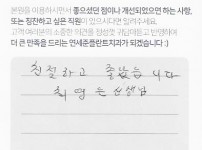 본원을 이용하시면서 좋으셨던 점이나 개선되었으면 하는 사항,
또는 칭찬하고 싶은 직원이 있으시다면 알려주세요.
고객 여러분의 소중한 의견을 정성껏 귀담아듣고 반영하여
더 큰 만족을 드리는 연세준플란트치과가 되겠습니다 :)
친절하고 좋았습니다
최영은 선생님